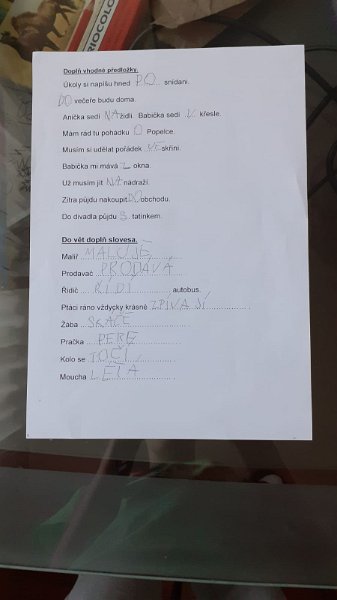 RIOCOLO
Doplň vhodné předložky.
Úkoly si napíšu hned PO snídani.
DO večeře budu doma.
Anička sedí NA židli. Babička sedí V křesle.
Mám rád tu pohádku O Popelce.
Musím si udělat pořádek VE skříni.
Babička mi mává Z okna.
Už musím jít NA nádraží.
Zítra půjdu nakoupit DO obchodu.
Do divadla půjdu S tatínkem.
Do vět doplň slovesa.
Malíř MALUJE
Prodavač PRODÁVÁ
Řidič ŘÍDÍ autobus.
Ptáci ráno vždycky krásně ZPÍVAJÍ
Žába SKÁČE
Pračka PERE
Kolo se TOČÍ
Moucha LÉTÁ